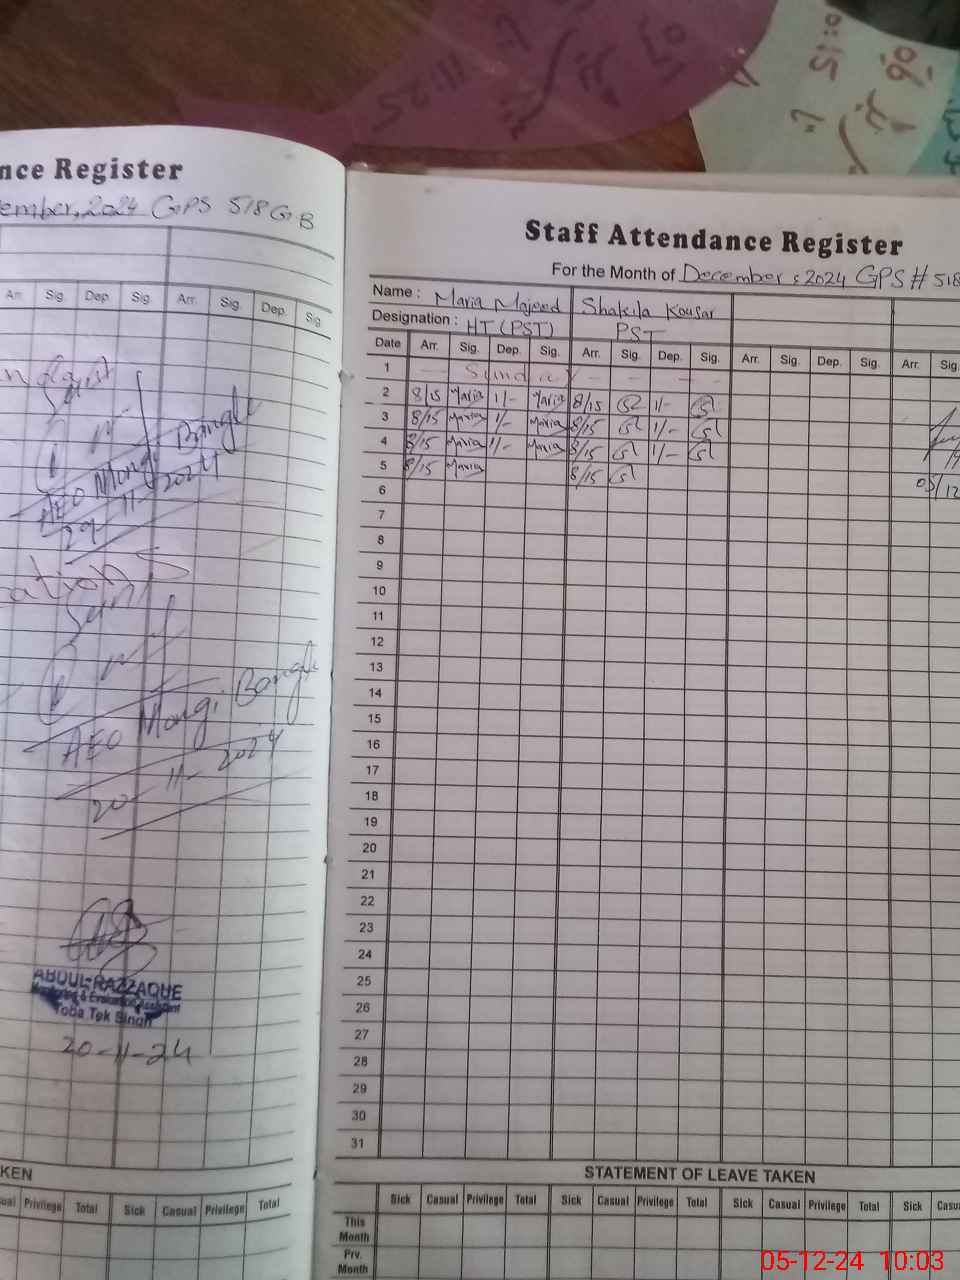 11:25
nce Register
ember, 2024 GPS 518 GB
Arr. Sig. Dep. Sig. Arr. Sig. Dep. Sig.
AEO Mongi Bangla
29-11-2024
AEO Mongi Bangla
20-11-2024
ABDUL-RAZZAQUE
Monitoring & Evaluation Assistant
Toba Tek Singh
20-11-24
KEN
ual Privilege Total Sick Casual Privilege Total
Staff Attendance Register
For the Month of December, 2024 GPS # 518
Name : Maria Majeed Shakila Kousar
Designation : HT (PST) PST
Date Arr. Sig. Dep. Sig. Arr. Sig. Dep. Sig. Arr. Sig. Dep. Sig. Arr. Sig.
1 Sunday
2 8/15 Maria 1/- Maria 8/15 1/-
3 8/15 Maria 1/- Maria 8/15 1/-
4 8/15 Maria 1/- Maria 8/15 1/-
5 8/15 Maria 8/15 05/12
6
7
8
9
10
11
12
13
14
15
16
17
18
19
20
21
22
23
24
25
26
27
28
29
30
31
STATEMENT OF LEAVE TAKEN
Sick Casual Privilege Total Sick Casual Privilege Total Sick Casual Privilege Total Sick Casu
This Month
Prv. Month
05-12-24 10:03